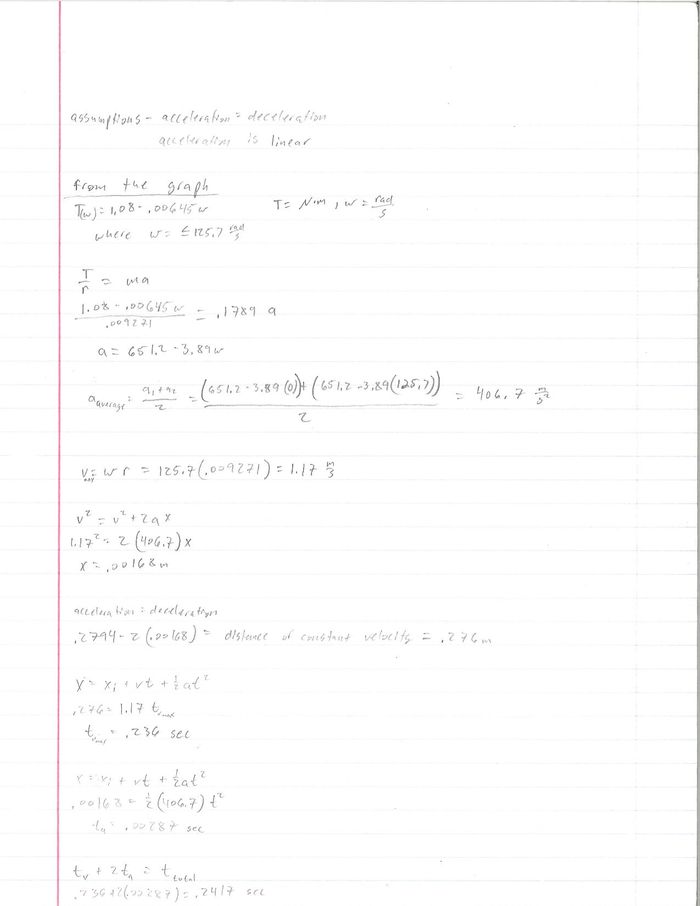 assumptions - acceleration = deceleration
acceleration is linear
from the graph
T(w) = 1.08 - .00645w T = N·m , w = rad/s
where w = ≤ 125.7 rad/s
T/r = ma
(1.08 - .00645w)/.009271 = .1789 a
a = 651.2 - 3.89w
a average = (a₁ + a₂)/2 = ((651.2 - 3.89(0)) + (651.2 - 3.89(125.7)))/2 = 406.7 m/s²
v max = wr = 125.7(.009271) = 1.17 m/s
v² = v² + 2ax
1.17² = 2(406.7)x
x = .00168m
acceleration = deceleration
.2794 - 2(.00168) = distance of constant velocity = .276m
x = xᵢ + vt + ½at²
.276 = 1.17 t vmax
t vmax = .236 sec
x = xᵢ + vt + ½at²
.00168 = ½(406.7)t²
tₐ = .00287 sec
tᵥ + 2tₐ = t total
.236+2(.00287) = .2417 sec